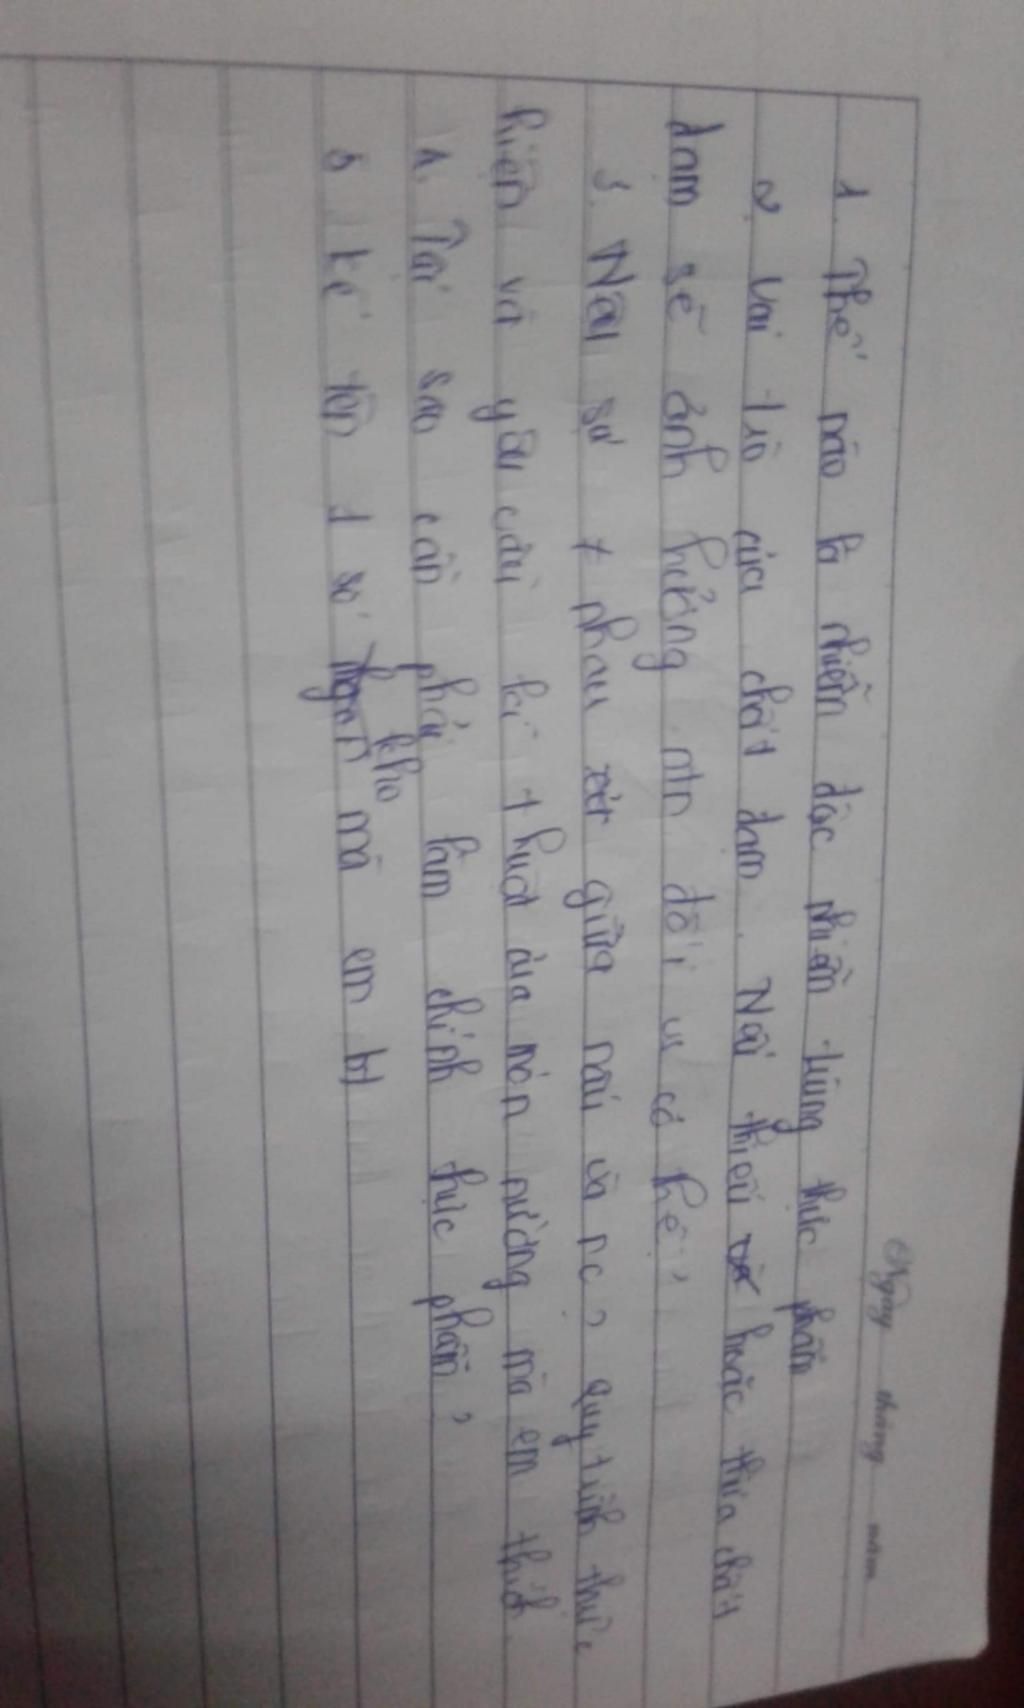 Ngày tháng năm
1 Thế nào là nhiễm độc nhiễm trùng thực phẩm
2. Vai trò của chất đạm. Nếu thiếu hoặc thừa chất
đạm sẽ ảnh hưởng ntn đối vs cơ thể?
3. Nêu sự ≠ nhau giữa nấu và nc? quy trình thực
hiện và yêu cầu kĩ thuật của món nướng mà em thích.
4. Tại sao cần phải làm chính thực phẩm?
5 kể tên 1 số kho mà em bt